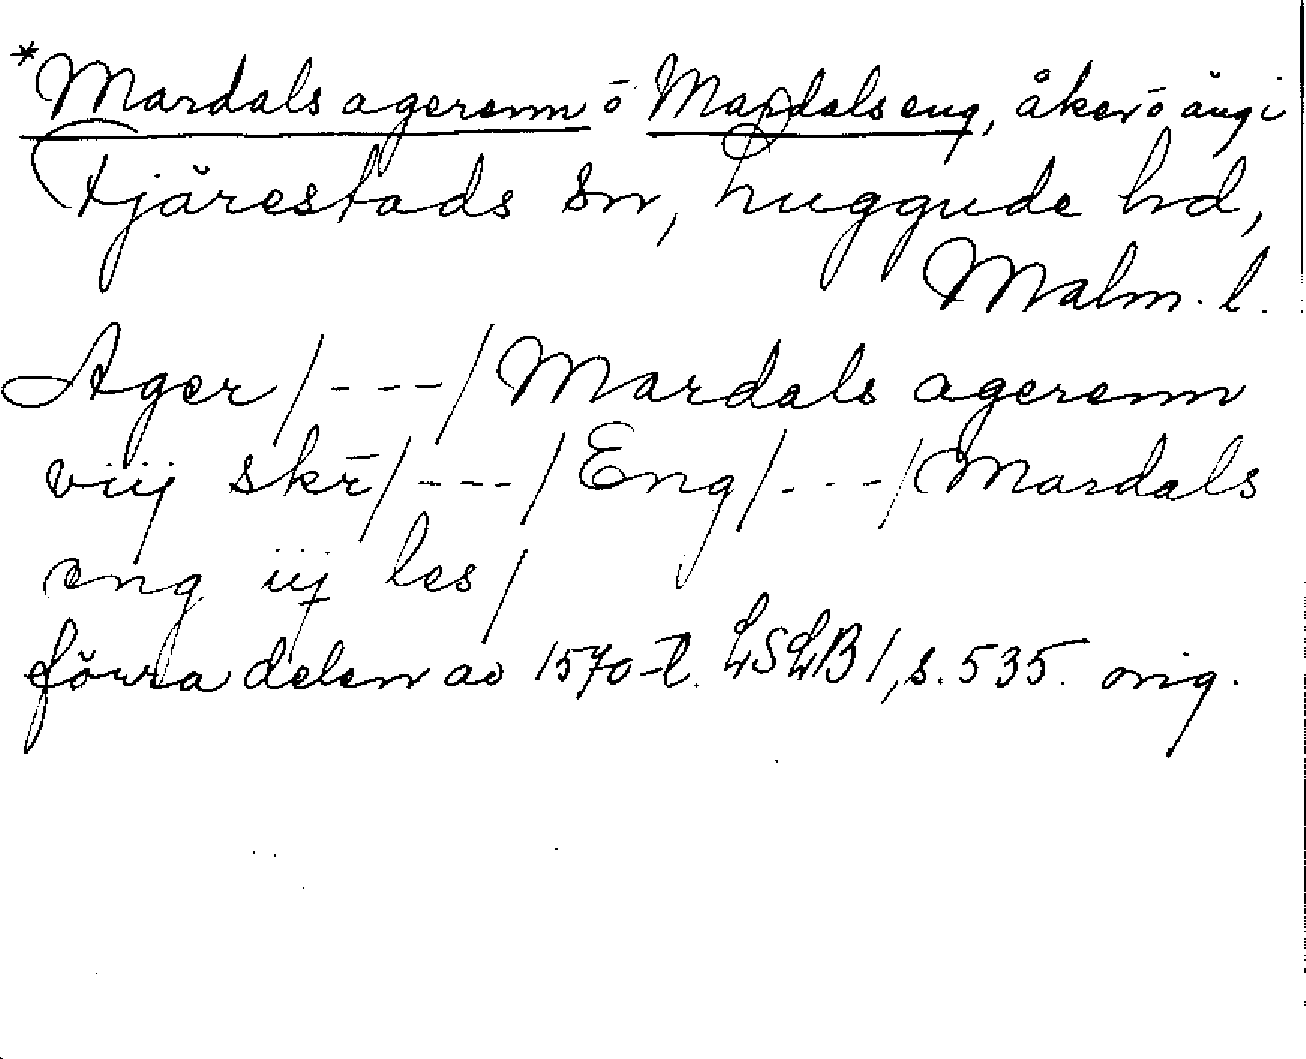 *Mardals agerenn ō Mardals eng, åker ō äng i
Fjärestads sn, Luggude hd,
Malm. l.
Ager /---/ Mardals agerenn
viij skr̄ /---/ Eng /---/ Mardals
eng iij les /
förra delen av 1570-t. LSLB 1, s. 535. orig.